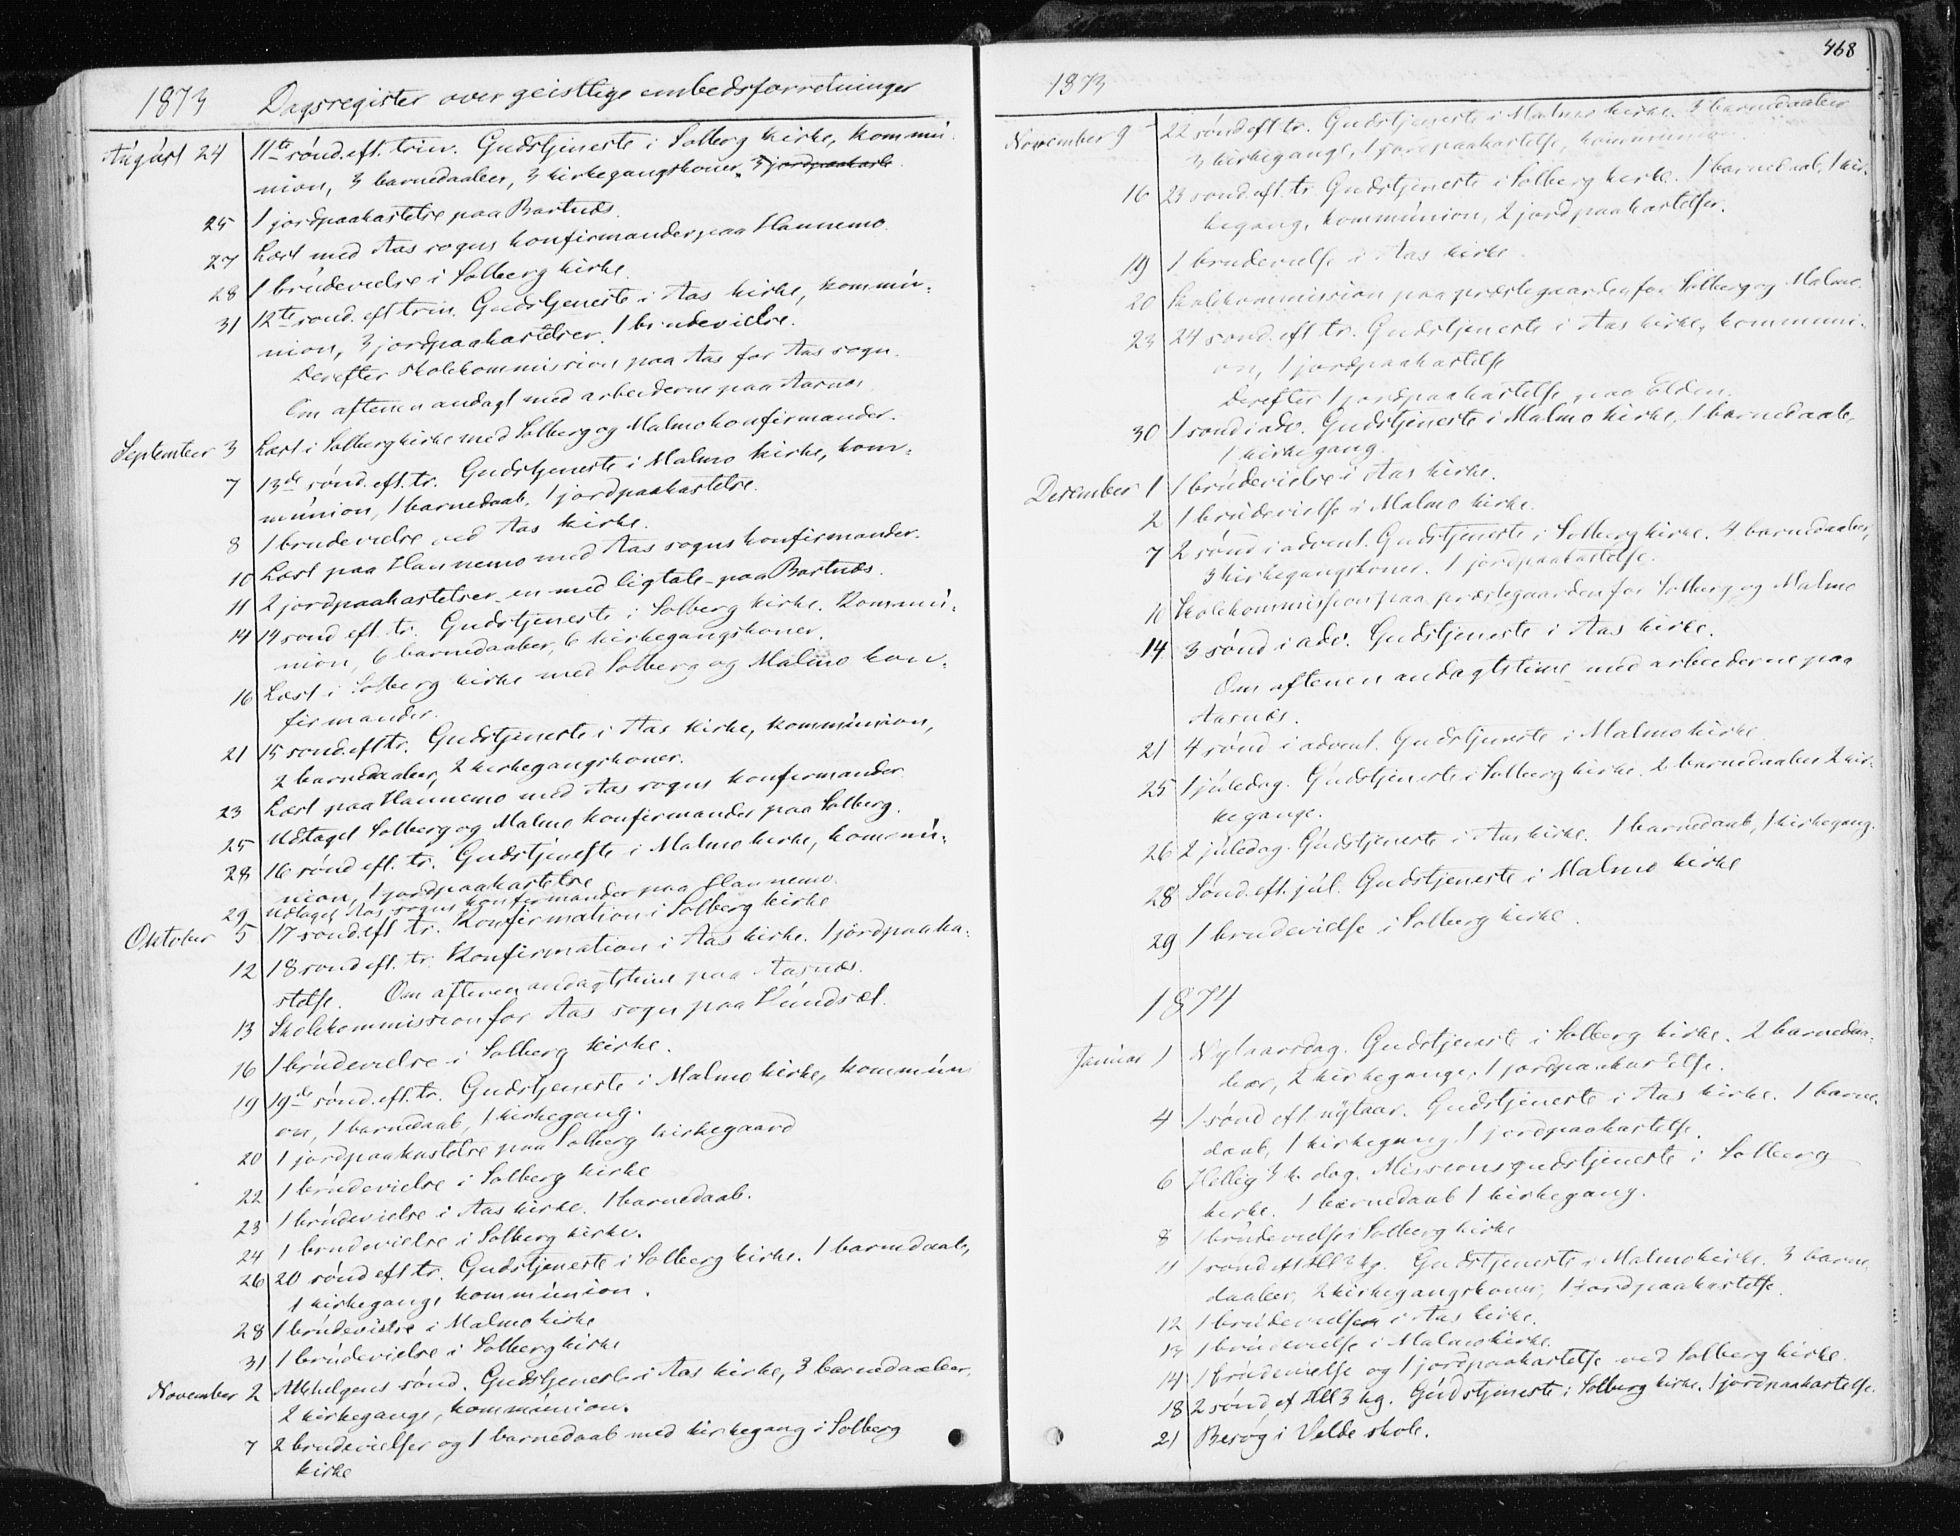 1873 Dagsregister over geistlige embedsforretninger
August 24 11te sønd. eft. trin. Gudstjeneste i Solberg kirke, kommu-
nion, 3 barnedaaber, 3 kirkegangskoner, 3 jordpaakaste
25 1 jordpaakastelse paa Bartnæs.
27 Læst med Aas sogns konfirmander paa Hannemo.
28 1 brudevielse i Solberg kirke.
31 12te sønd. eft trin. Gudstjeneste i Aas kirke, kommu-
nion, 3 jordpaakastelser. 1 brudevielse.
Derefter skolekommission paa Aas for Aas sogn.
Om aftenen andagt med arbeiderne paa Aasnæs
September 3 Læst i Solberg kirke med Solberg og Malmo konfirmander.
7 13de sønd. eft. tr. Gudstjeneste i Malmo kirke, kom-
munion, 1 barnedaab, 1 jordpaakastelse.
8 1 brudevielse ved Aas kirke.
10 Læst paa Hannemo med Aas sogns konfirmander.
11 2 jordpaakastelser en med ligtale paa Bartnæs.
14 14 sønd eft. tr. Gudstjeneste i Solberg kirke. Kommu-
nion, 6 barnedaaber, 6 kirkegangskoner.
16 Læst i Solberg kirke med Solberg og Malmo kon-
firmander.
21 15 sønd. eft tr. Gudstjeneste i Aas kirke, kommunion,
2 barnedaaber, 2 kirkegangskoner.
23 Læst paa Hannemo med Aas sogns konfirmander
25 Udtaget Solberg og Malmo konfirmander paa Solberg.
28 16 sønd eft. tr. Gudstjeneste i Malmo kirke, kommu-
nion, 1 jordpaakastelse
29 Udtaget Aas sogns konfirmander paa Hannemo.
Oktober 5 17 sønd. eft tr. Konfirmation i Solberg kirke
12 18 sønd eft. tr. Konfirmation i Aas kirke. 1 jordpaaka-
stelse. Om aftenen andagtstime paa Aasnæs.
13 Skolekommission for Aas sogn paa Hundsæt.
16 1 brudevielse i Solberg kirke.
19 19de sønd. eft. tr. Gudstjeneste i Malmo kirke, kommuni
on, 1 barnedaab, 1 kirkegang.
20 1 jordpaakastelse paa Solberg kirkegaard
22 1 brudevielse i Solberg kirke
23 1 brudevielse i Aas kirke. 1 barnedaab.
24 1 brudevielse i Solberg kirke.
26 20 sønd eft tr. Gudstjeneste i Solberg kirke. 1 barnedaab,
1 kirkegang, kommunion.
28 1 brudevielse i Malmo kirke
31 1 brudevielse i Solberg kirke
November 2 Allehelgens sønd. Gudstjeneste i Aas kirke, 3 barnedaaber,
2 kirkegange, kommunion.
7 2 brudevielser og 1 barnedaab med kirkegang i Solberg
kirke
468
1873
November 9 22 sønd eft tr. Gudstjeneste i Malmo kirke. 3 barnedaaber
3 kirkegange, 1 jordpaakastelse, kommunion
16 23 sønd. eft. tr Gudstjeneste i Solberg kirke. 1 barnedaab, 1 kir-
kegang, kommunion, 2 jordpaakastelser.
19 1 brudevielse i Aas kirke
20 Skolekommission paa præstegaarden for Solberg og Malmo.
23 24 sønd. eft tr. Gudstjeneste i Aas kirke, kommuni-
on, 1 jordpaakastelse
Derefter 1 jordpaakastelse paa Elden.
30 1 sønd i adv. Gudstjeneste i Malmo kirke, 1 barnedaab,
1 kirkegang.
Desember 1 1 brudevielse i Aas kirke.
2 1 brudevielse i Malmo kirke.
7 2 sønd i advent. Gudstjeneste i Solberg kirke. 4 barnedaaber,
3 kirkegangskoner. 1 jordpaakastelse.
10 Skolekommission paa præstegaarden for Solberg og Malmo
14 3 sønd i adv. Gudstjeneste i Aas kirke.
Om aftenen andagtstime med arbeiderne paa
Aasnæs.
21 4 sønd i advent. Gudstjeneste i Malmo kirke
25 1 juledag. Gudstjeneste i Solberg kirke. 2 barnedaaber 2 kir-
kegange.
26 2 juledag. Gudstjeneste i Aas kirke. 1 barnedaab, 1 kirkegang.
28 Sønd. eft. jul. Gudstjeneste i Malmo kirke
29 1 brudevielse i Solberg kirke.
1874
Januar 1 Nytaarsdag. Gudstjeneste i Solberg kirke. 2 barnedaa-
ber, 2 kirkegange, 1 jordpaakastelse.
4 1 sønd eft nytaar. Gudstjeneste i Aas kirke. 1 barne-
daab, 1 kirkegang, 1 jordpaakastelse.
6 Hellig 3 k. dag. Missionsgudstjeneste i Solberg
kirke. 1 barnedaab 1 kirkegang.
8 1 brudevielse i Solberg kirke
11 1 sønd eft Hll 3 kg. Gudstjeneste i Malmo kirke. 3 barne
daaber, 2 kirkegangskoner, 1 jordpaakastelse.
12 1 brudevielse i Aas kirke.
13 1 brudevielse i Malmo kirke.
14 1 brudevielse og 1 jordpaakastelse ved Solberg kirke.
18 2 sønd ef Hll 3 kg. Gudstjeneste i Solberg kirke. 1 jordpaakastelse.
21 Besøg i Velde skole.